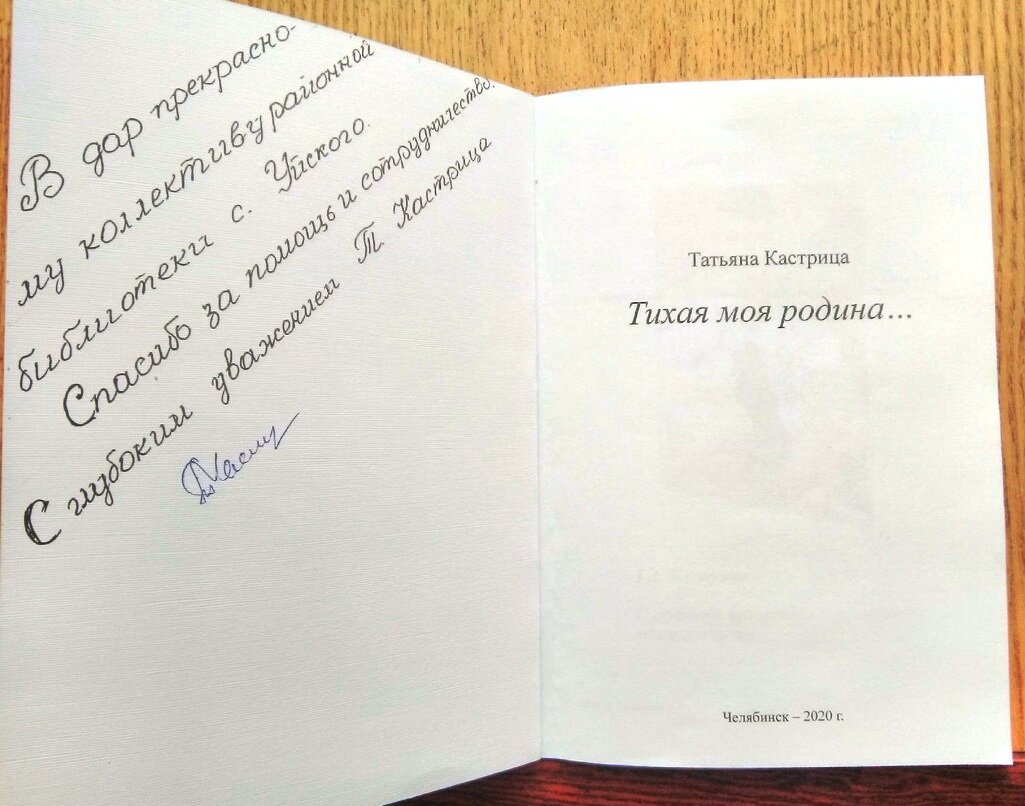 В дар прекрасно-
му коллективу районной
библиотеки с. Уйского.
Спасибо за помощь и сотрудничество.
С глубоким уважением Т. Кастрица
Татьяна Кастрица
Тихая моя родина...
Челябинск – 2020 г.